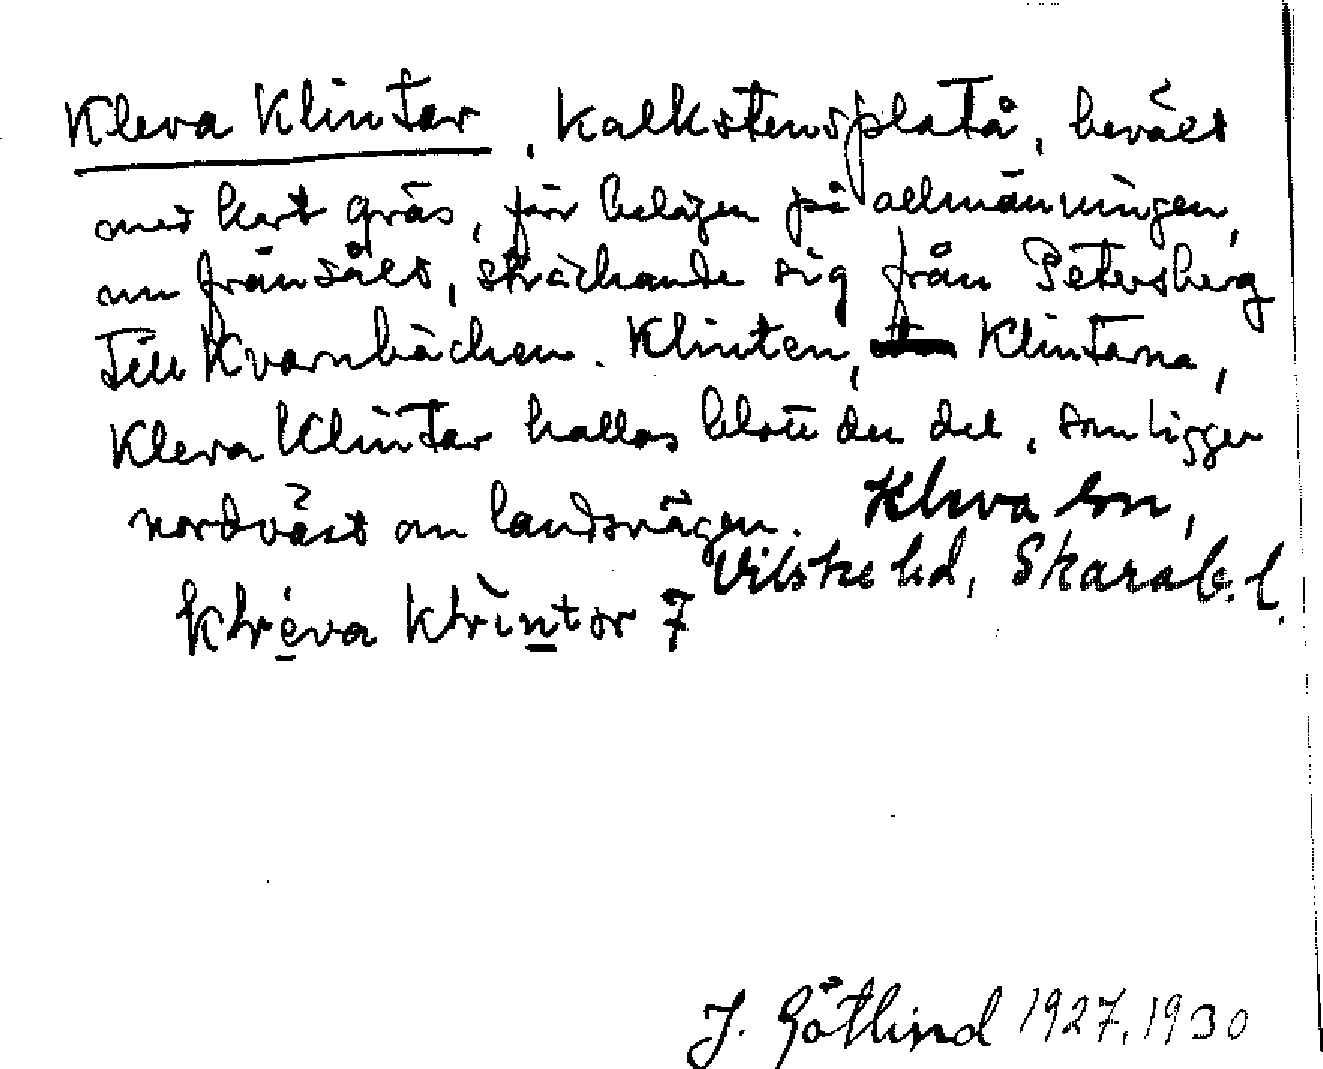 Kleva Klintar, kalkstensplatå, beväxt
med kort gräs, förr belägen på allmänningen,
nu frånsåld, sträckande sig från Petersberg
till Kvarnbäcken. Klinten, Klintarna,
Kleva Klintar kallas blott den del, som ligger
nordväst om landsvägen. Kleva sn,
Vilske hd, Skarab. l.
J. Götlind 1927, 1930